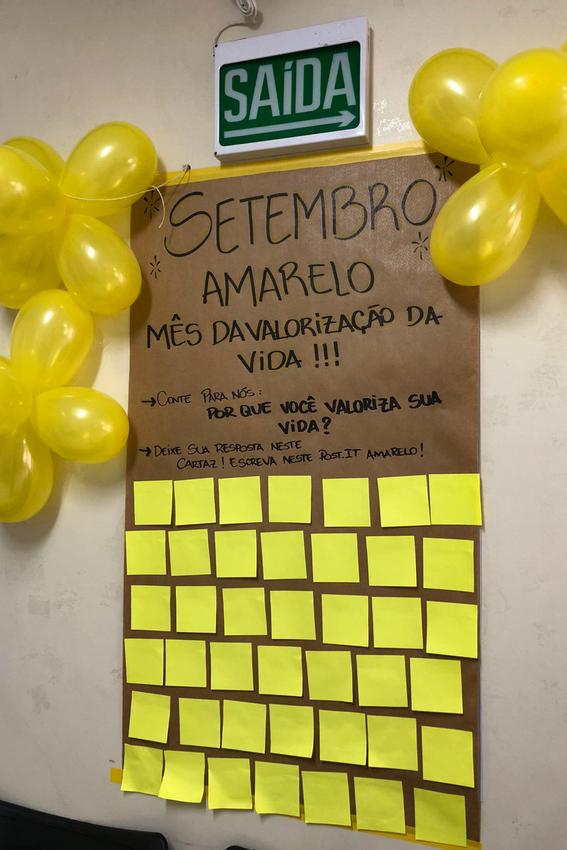 SAíDA
SETEMBRO
AMARELO
MÊS DA VALORiZAÇÃO DA
ViDA !!!
→CONTE PARA NÓS:
POR QUE VOCÊ VALORiZA SUA
ViDA?
→DEIXE SUA RESPOSTA NESTE
CARTAZ! ESCREVA NESTE POST.IT AMARELO!